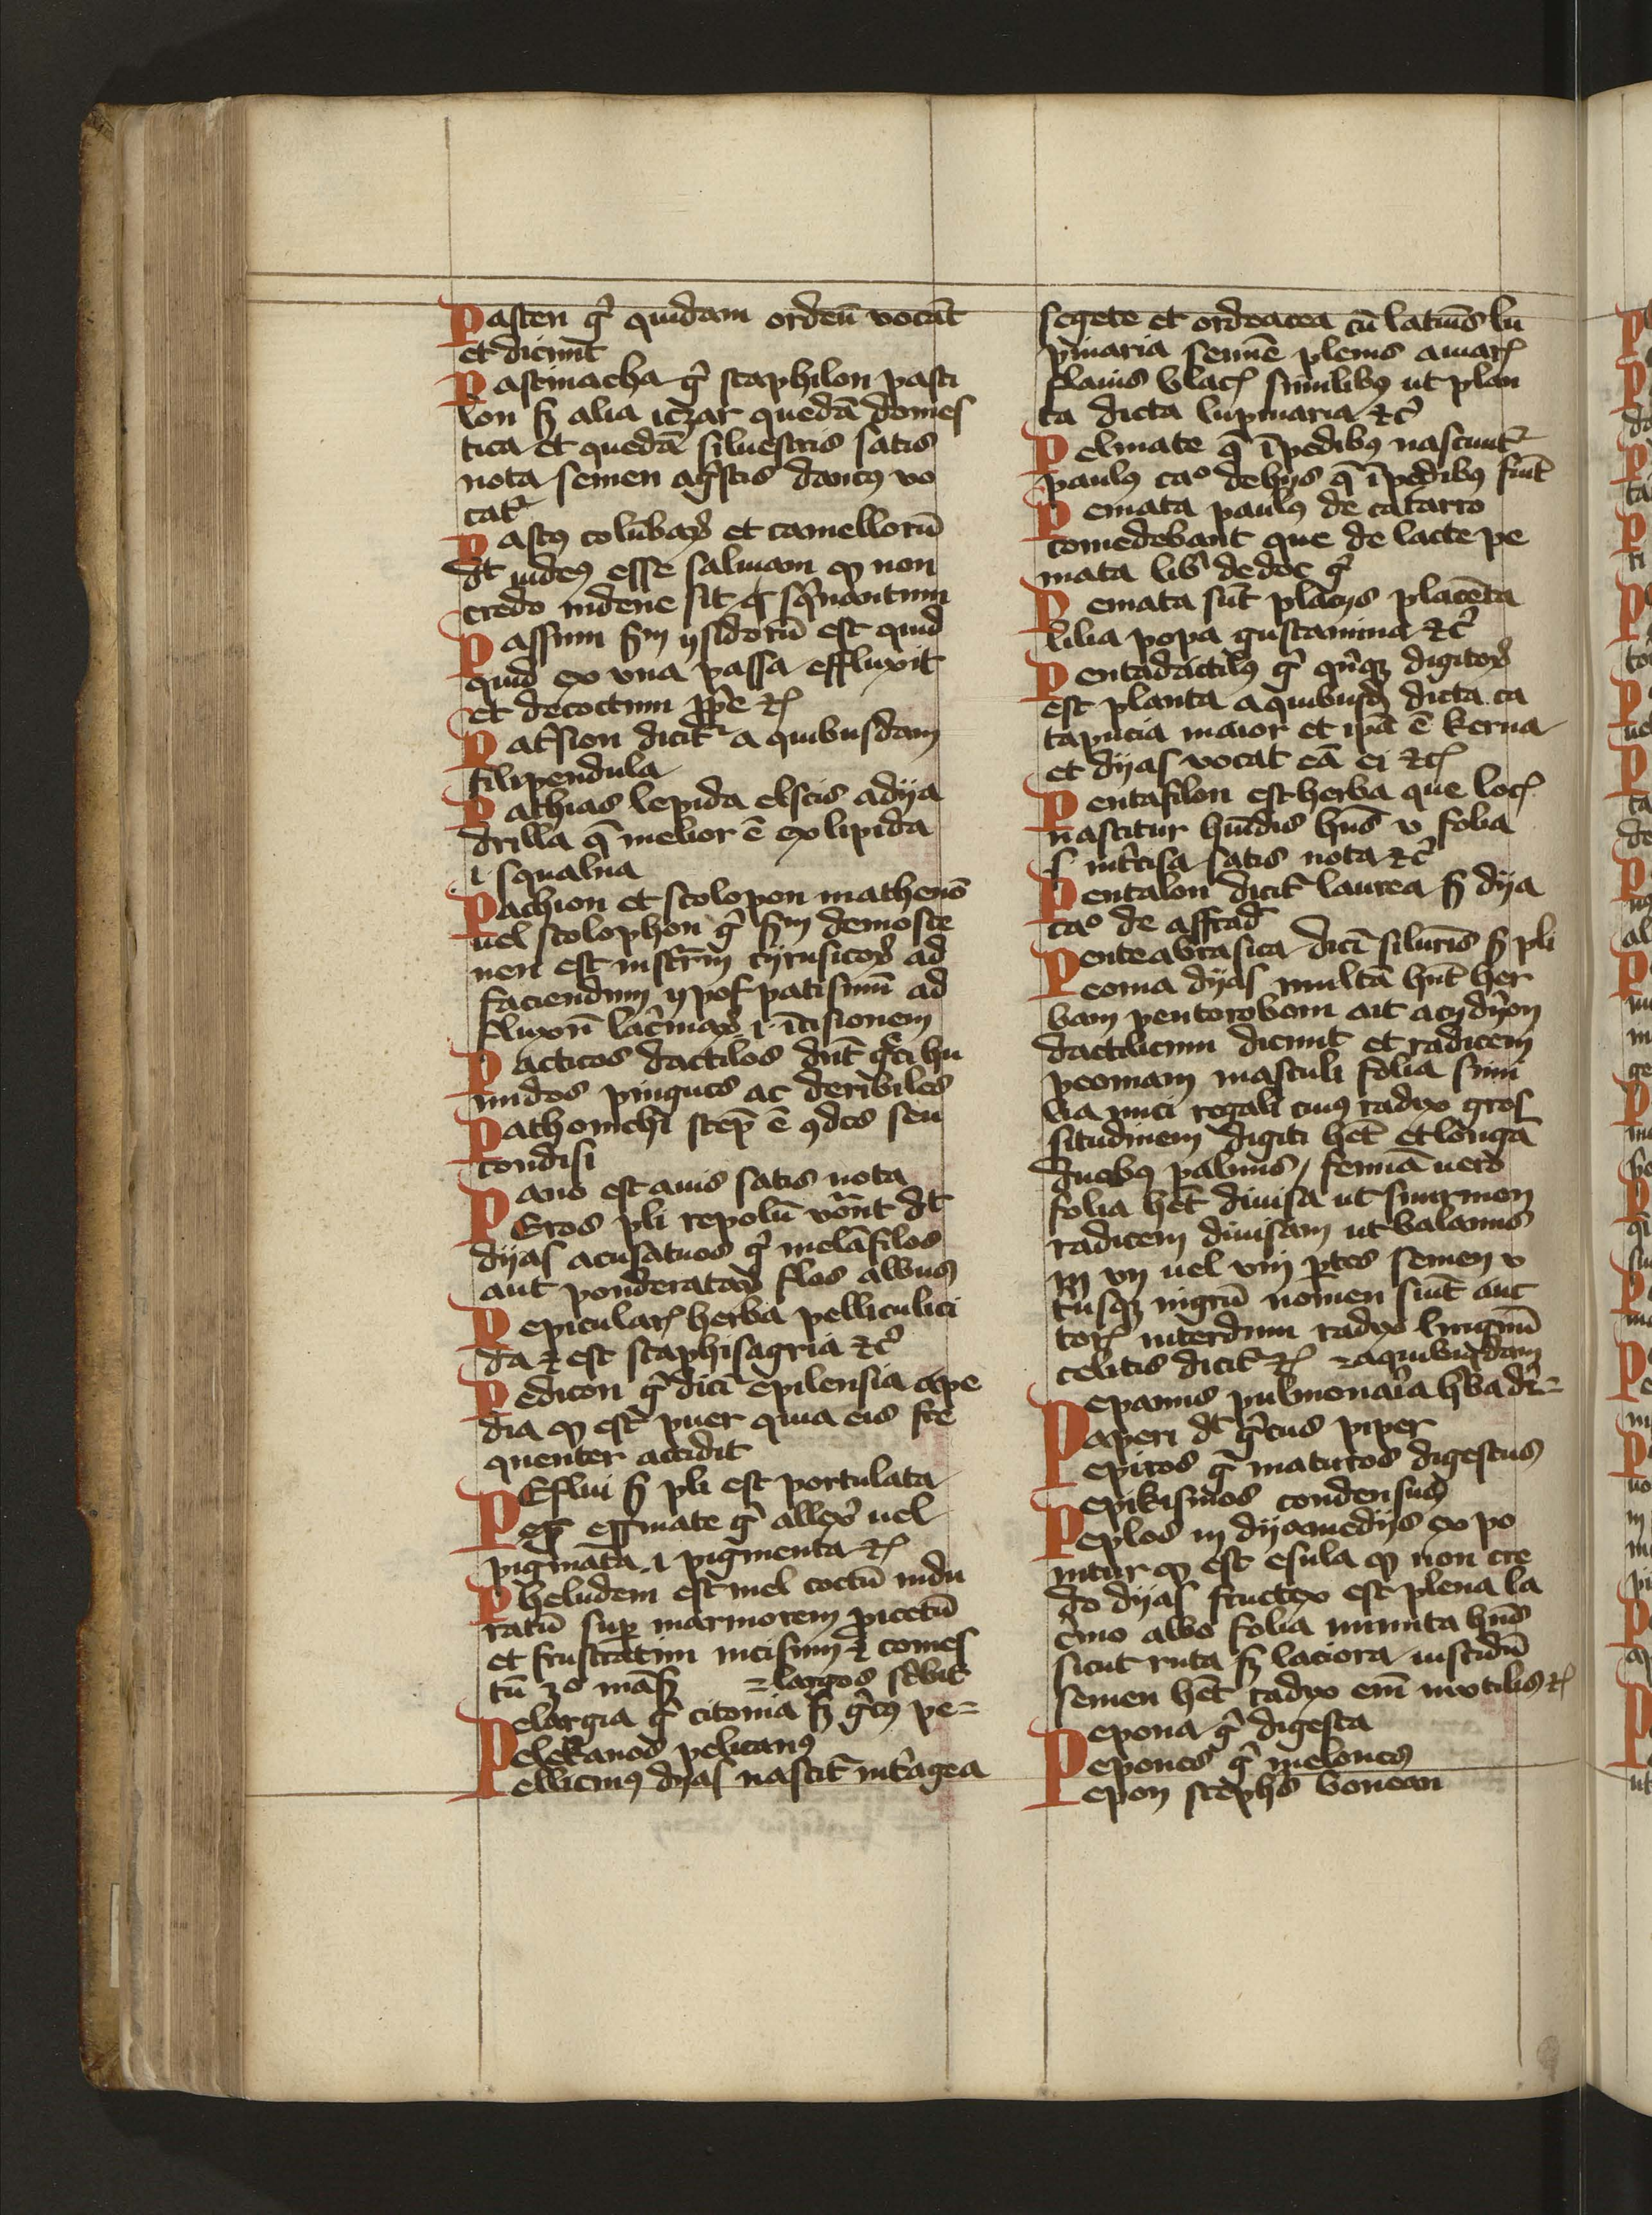 Pasten gͥ quidam ordeū vocāt
et dicunt
Pastinacha gͥ staphilon pasti
lon ẜ alia iezar quedā domes
tica et quedā siluestris satis
nota semen ag̾stis daucꝰ vo
catᷣ
Pastꝰ colūbaꝝ et camellorū
dt̄ iudeꝰ esse saluiam ꝙ non
credo
Passum ẜm ysidorū est quid
quid ex vua passa effluxit
et decoctum ꝓpe ⁊c̄
Pat̾sion dicitᷣ a quibusdam
filipendula
Pathias lepida
drilla q̄ melior ē ex lipida
.i. squalua
Pachion et scolopon
uel scolophon gͥ ẜm demoste
nen est inst̾rm̄ cyrusicoꝝ ad
faciendum ypospatisimū ad
fluxū lac̾maꝝ .i. ītisionem
Pacticos dactilos dnt̄ gͣci hu
midos pingues ac
Pathonichi stepħ ē
condisi
Pano est auis satis nota
PEros pli repolū vōnt dt̄
dyas acusatuos gͥ melāfilos
aut ponderataꝝ flos albus
Pepicularꝭ herba pelliculici
da ⁊ est staphisagria ⁊cͥ
Pedicon gͥ dicī epilensia a pe
dia ꝙ est puer quia eis fre
quenter accidit
PEflui ẜ pli est portulata
Pep̄ epīmate gͥ allexꝰ uel
pigmata .i. pigmenta ⁊c̄
Pheludem est mel coctū indu
ratū suꝑ marmorem picctū
et frustratim incisum ⁊ comes
tū =largos
Pelargia gͥ citonia ẜ gͣcꝰ pe=
Pelekanos pelicanꝰ
Pellicinꝰ dyas nascitᷣ int̾ agea
segete et ordeacea cū
pinaria semīe plenis amarꝭ
flauis similibꝰ ut plan
ta dicta lupinaria ⁊cͥ
Pelmate q̄ ī pedibus nascuntᷣ
paulꝰ caº de hys q̄ ī pedibꝰ fiūt
Pemata paulꝰ de catarro
comedebant que de lacte pe
mata gͥ
Pemata sūt placꝫs placēta
lilia popa gustamina ⁊cͥ
Pentadactilꝰ gͥ qnqꝫ digitoꝝ
est planta a quibusdꝫ dicta ca
tapucia maior et ip̄a ē kerua
et dyas vocat eā ci ⁊c̄
Pentafilon est herba que locꝭ
nascitur hūidis hn̄s v folia
intͨisa satis nota ⁊cͥ
Pentalon dicitᷣ laurea ẜ dya
caº de
Penteabrasica dicī silurīs ẜ pli
Peonia dyas multā hn̄t her
bam pentorobom ait
dactilicum dicunt et radicem
peoniam masculi folia simi
lia nuci regali cuiꝰ radix gros
situdinem digiti hēt et longā
duobꝰ palmis / feminā uero
folia hēt diuisa ut smirnion
radicem diuisam ut balanus
in vij uel viij p̄tes semen
usqꝫ nigrū nomen sūt auc
torꝭ interdum radix
celitis dicitᷣ ⁊c̄ =a quibusdam
Pepanus pulmonaīa hͥba dr̄=
Paperi dt̄ gͣcus piper
Pepiros gͥ maturos digestus
Pepikismos condensus
Peplos in dyamedys expo
nitur ꝙ est esula ꝙ non cre
do dyas fructex est plena la
cͥmo albo folia minuta hn̄s
sicut ruta ẜ laciora
semen hēt radix em̄ inutilis ⁊c̄
Pepona gͥ digesta
Pepones gͥ melones
Pepon stephꝰ bonean